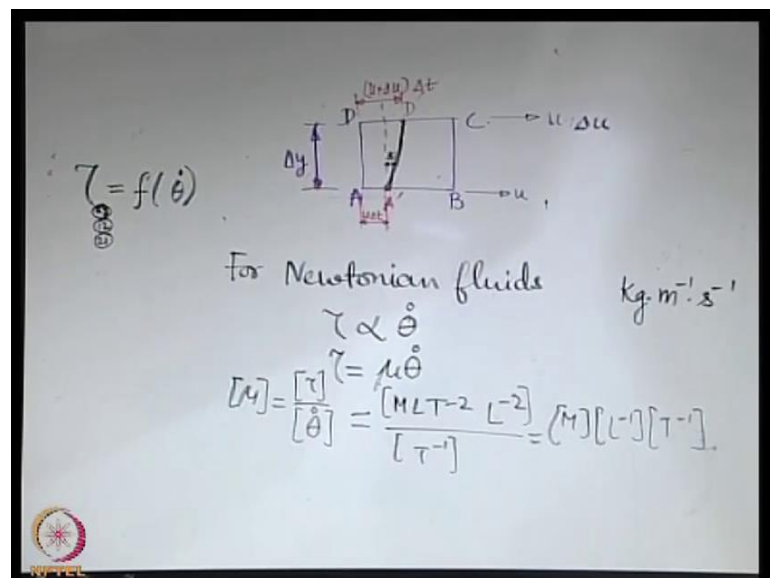 (u+Δu) Δt
D D' C → u Δu
Δy
A A' B → u
uΔt
τ = f(θ̇)
For Newtonian fluids
kg·m⁻¹·s⁻¹
τ ∝ θ̇
τ = μθ̇
[μ] = [τ]/[θ̇] = [MLT⁻² L⁻²]/[T⁻¹] = [M][L⁻¹][T⁻¹].
NPTEL